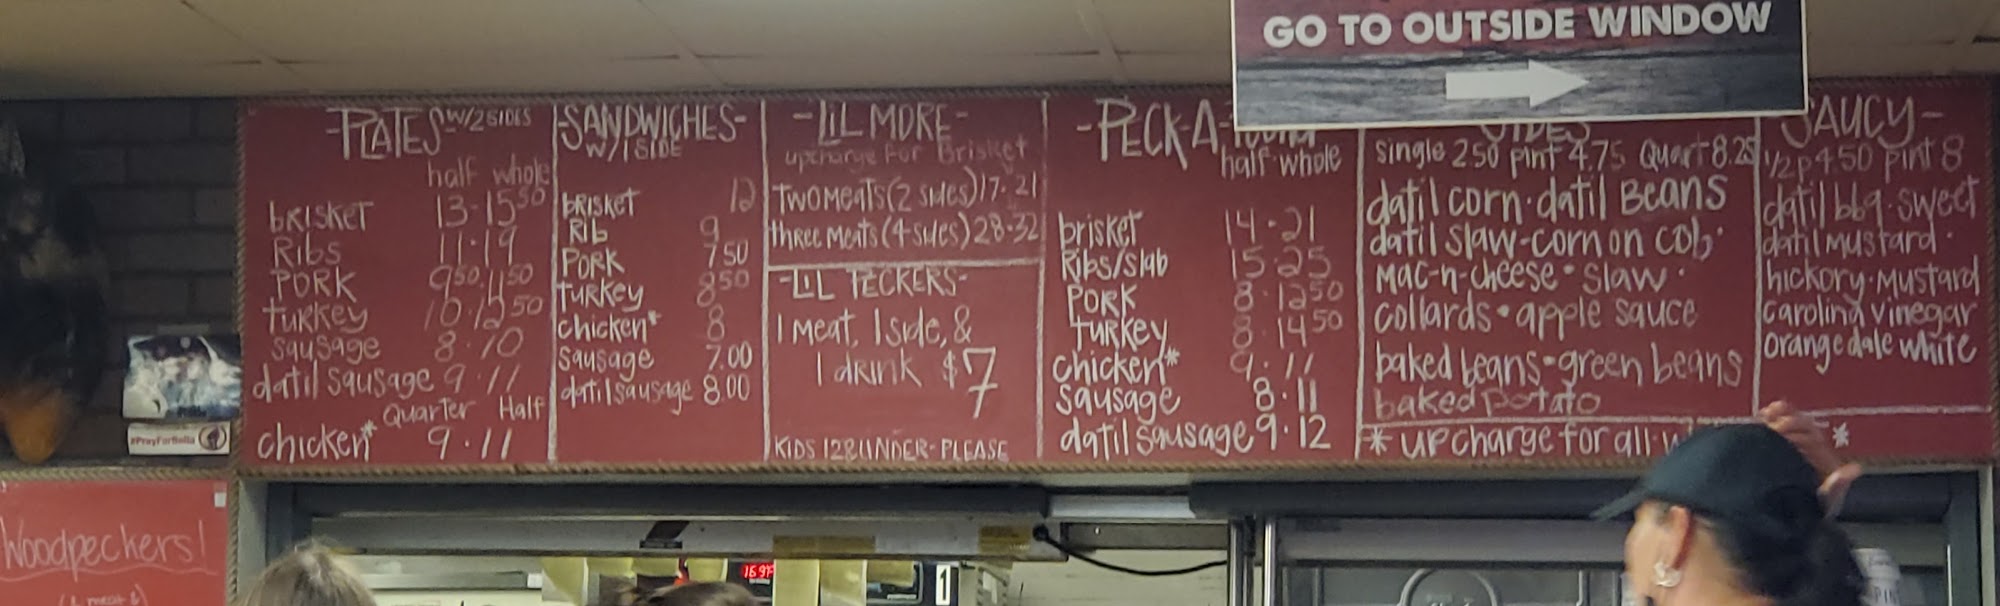 GO TO OUTSIDE WINDOW
-PLATES- W/2 SIDES
half whole
bRISKET 13-15 50
RibS 11-19
PORK 9 50 11 50
tuRKey 10-12 50
sausage 8-10
datil sausage 9-11
Quarter Half
chicken* 9-11
-SANDWICHES-
W/1 SIDE
bRISKET 12
RIb 9
PORK 7 50
tuRKey 8 50
chicken* 8
sausage 7.00
datil sausage 8.00
-LiL MORE-
upcharge for Brisket
TWO MEATS (2 sides) 17-21
three meats (4 sides) 28-32
-LiL PECKERS-
1 meat, 1 side, &
1 drink $7
KIDS 12 & UNDER-PLEASE
-PECK-A-
half whole
brisket 14-21
Ribs/slab 15-25
PORK 8-12 50
turkey 8-14 50
chicken* 9-11
sausage 8-11
datil sausage 9-12
SIDES
single 2 50 pint 4.75 Quart 8.25
datil corn · datil Beans
datil slaw-corn on cob ·
mac-n-cheese · slaw ·
collards · apple sauce
baked beans-green beans
baked potato
* up charge for all
*
SAUCY-
1/2 p 4 50 pint 8
datil bbq · sweet
datil mustard ·
hickory · mustard
carolina vinegar
orangedale white
#PrayForBella
Woodpeckers!
1